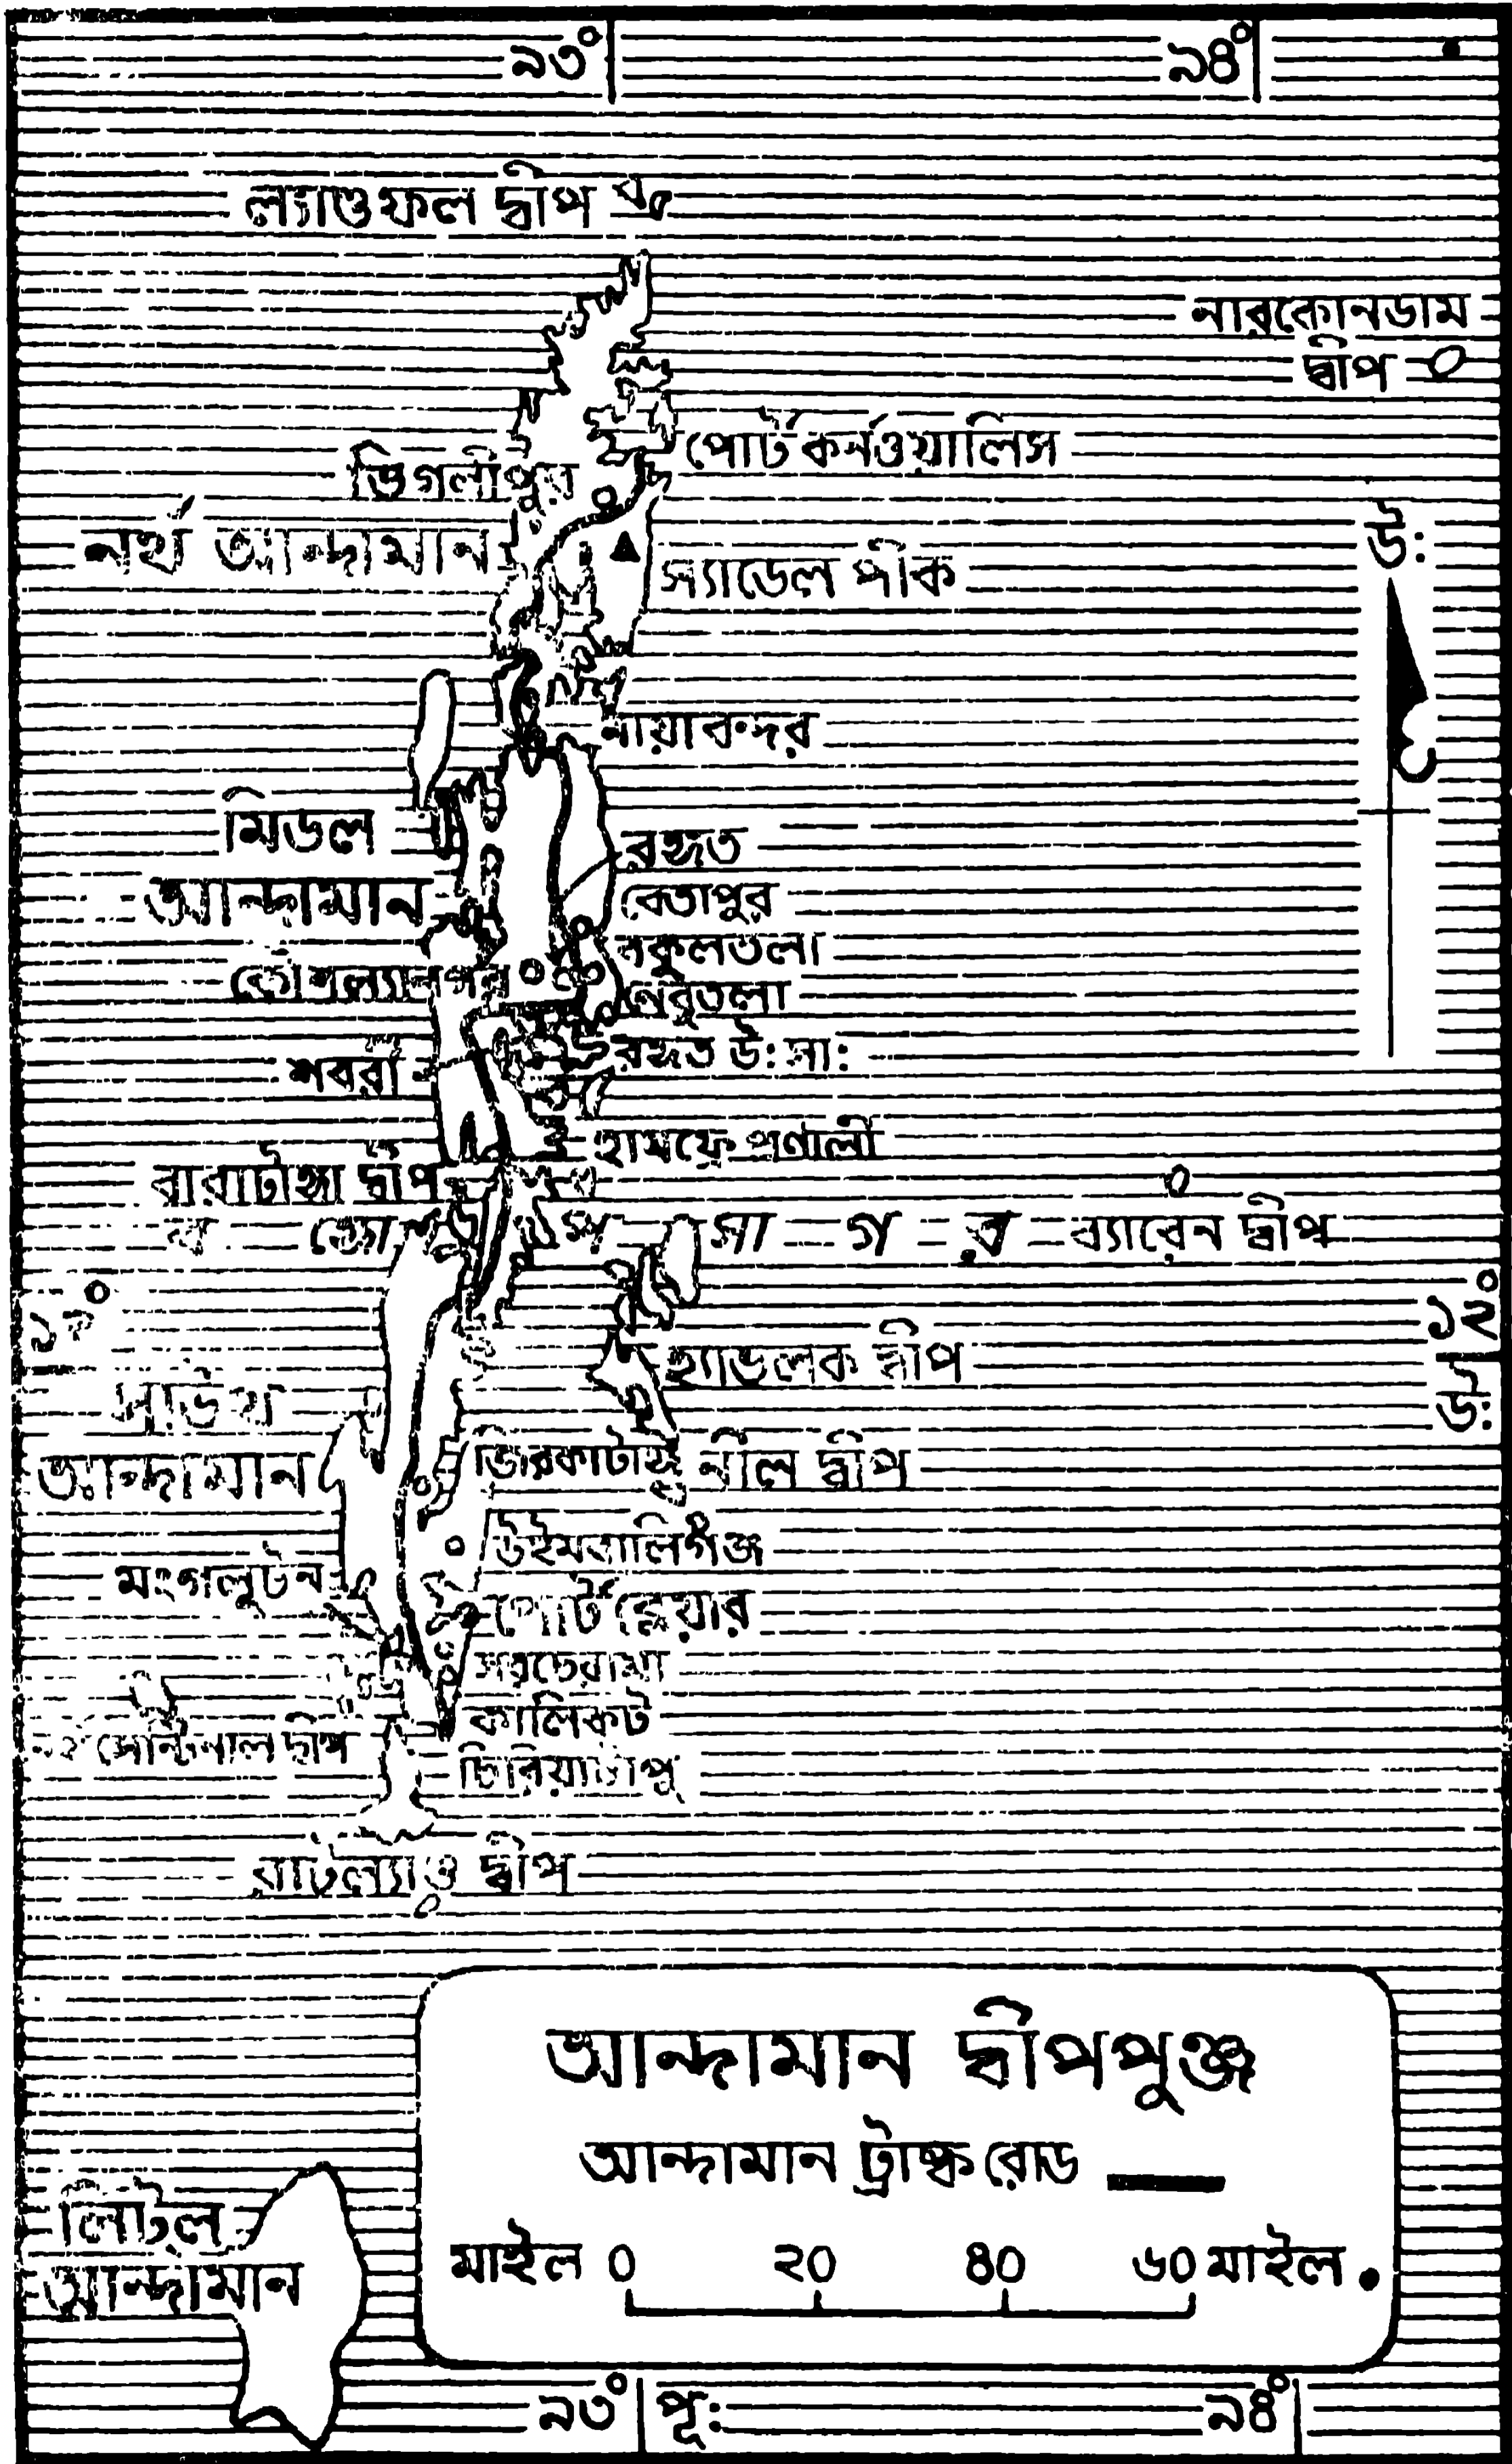 ৯৩° ৯৪°
ল্যাণ্ডফল দ্বীপ
নারকোনডাম
দ্বীপ
পোর্ট কর্নওয়ালিস
ডিগলীপুর
উঃ
নর্থ আন্দামান
স্যাডেল পীক
মায়াবন্দর
মিডল
রঙ্গত
আন্দামান
বেতাপুর
বকুলতলা
কৌশল্যানগর
নেবুতলা
রঙ্গত উঃ সাঃ
শবরী
হামফ্রে প্রণালী
বারাটাঙ্গা দ্বীপ
ব ঙ্গো প সা গ র
ব্যারেন দ্বীপ
১২° ১২°
উঃ
হ্যাভলক দ্বীপ
সাউথ
আন্দামান
জিরকাটাঙ্গ নীল দ্বীপ
উইমবালিগঞ্জ
মংগলুটন
পোর্ট ব্লেয়ার
কালিকট
সেন্টিনাল দ্বীপ
চিরিয়াটাপু
রাটল্যাণ্ড দ্বীপ
আন্দামান দ্বীপপুঞ্জ
আন্দামান ট্রাঙ্ক রোড
লিটল
আন্দামান
মাইল ০ ২০ ৪০ ৬০ মাইল
৯৩° পূঃ ৯৪°